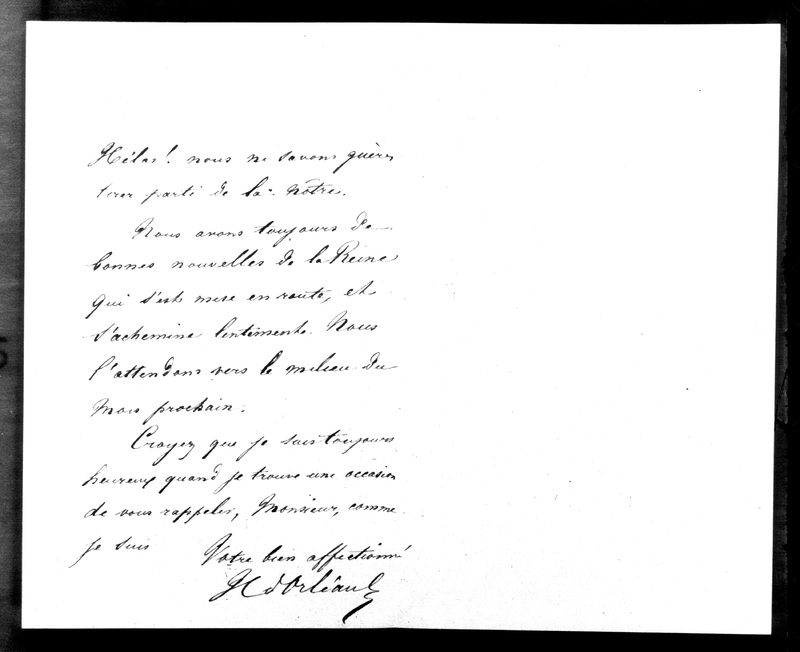 Hélas! nous ne savons guères
tirer parti de la nôtre.
Nous avons toujours de
bonnes nouvelles de la Reine
qui s'est mise en route, et
s'achemine lentement. Nous
l'attendons vers le milieu du
mois prochain.
Croyez que je suis toujours
heureux quand je trouve une occasion
de vous rappeler, Monsieur, comme
je suis
Votre bien affectionné
H d'Orléans